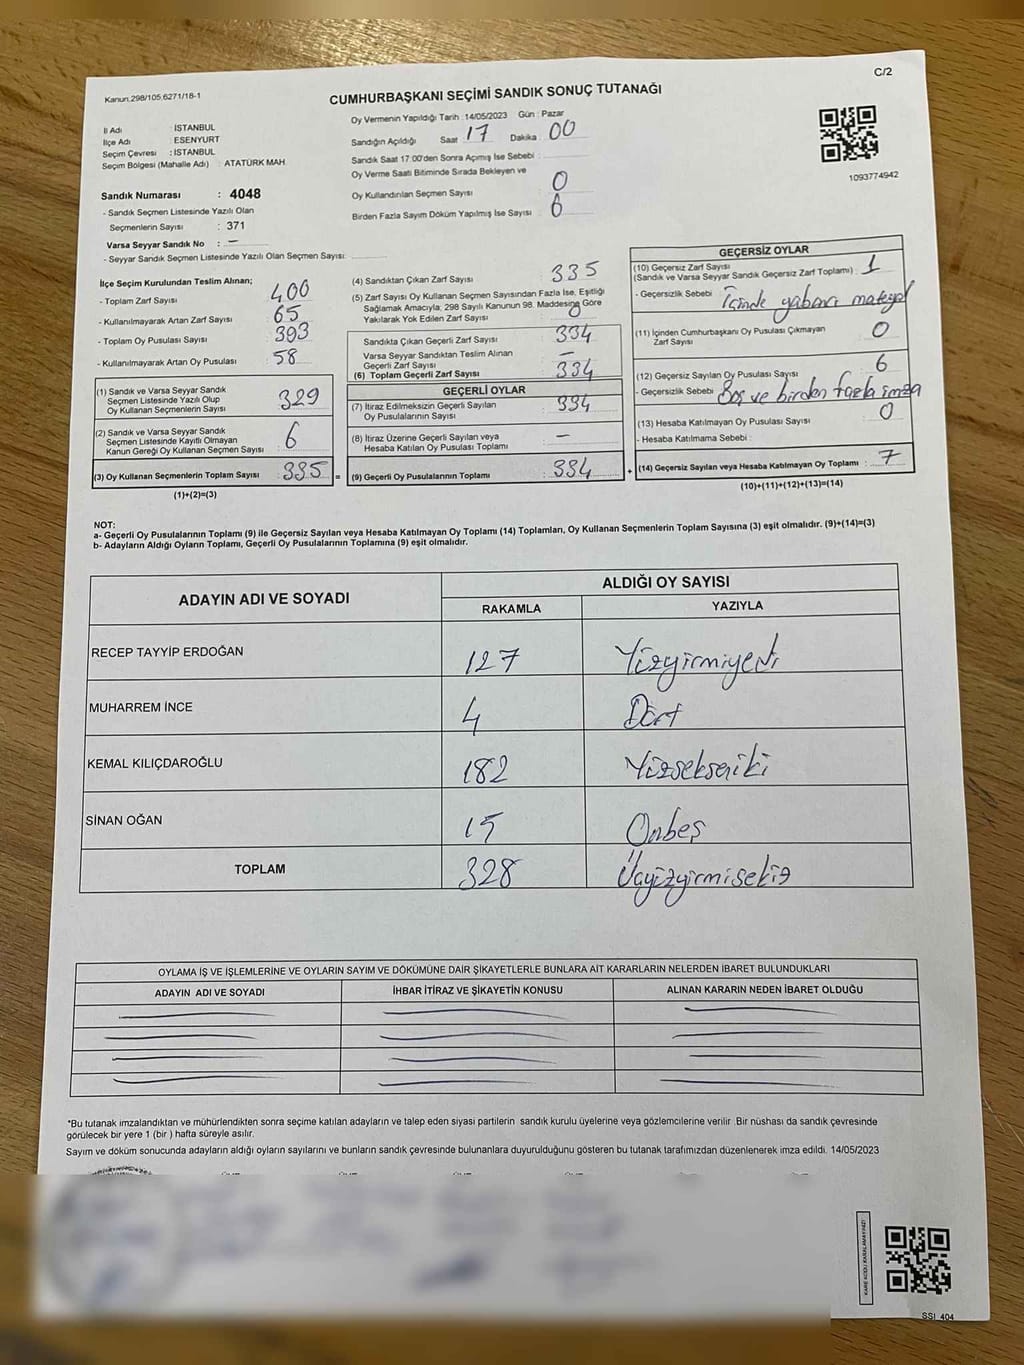 C/2
Kanun.298/105.6271/18-1
CUMHURBAŞKANI SEÇİMİ SANDIK SONUÇ TUTANAĞI
İl Adı : İSTANBUL
İlçe Adı : ESENYURT
Seçim Çevresi : İSTANBUL
Seçim Bölgesi (Mahalle Adı) : ATATÜRK MAH.
Sandık Numarası : 4048
- Sandık Seçmen Listesinde Yazılı Olan
Seçmenlerin Sayısı : 371
Varsa Seyyar Sandık No : –
- Seyyar Sandık Seçmen Listesinde Yazılı Olan Seçmen Sayısı:
Oy Vermenin Yapıldığı Tarih :14/05/2023 Gün : Pazar
Sandığın Açıldığı Saat : 17 Dakika : 00
Sandık Saat 17:00'den Sonra Açılmış İse Sebebi :
Oy Verme Saati Bitiminde Sırada Bekleyen ve
Oy Kullandırılan Seçmen Sayısı : 0
Birden Fazla Sayım Döküm Yapılmış İse Sayısı : 0
1093774942
İlçe Seçim Kurulundan Teslim Alınan;
- Toplam Zarf Sayısı : 400
- Kullanılmayarak Artan Zarf Sayısı : 65
- Toplam Oy Pusulası Sayısı : 393
- Kullanılmayarak Artan Oy Pusulası : 58
(1) Sandık ve Varsa Seyyar Sandık
Seçmen Listesinde Yazılı Olup
Oy Kullanan Seçmenlerin Sayısı : 329
(2) Sandık ve Varsa Seyyar Sandık
Seçmen Listesinde Kayıtlı Olmayan
Kanun Gereği Oy Kullanan Seçmen Sayısı : 6
(3) Oy Kullanan Seçmenlerin Toplam Sayısı : 335 =
(1)+(2)=(3)
(4) Sandıktan Çıkan Zarf Sayısı : 335
(5) Zarf Sayısı Oy Kullanan Seçmen Sayısından Fazla İse, Eşitliği
Sağlamak Amacıyla; 298 Sayılı Kanunun 98. Maddesine Göre
Yakılarak Yok Edilen Zarf Sayısı : 0
Sandıkta Çıkan Geçerli Zarf Sayısı : 334
Varsa Seyyar Sandıktan Teslim Alınan
Geçerli Zarf Sayısı : –
(6) Toplam Geçerli Zarf Sayısı : 334
GEÇERLİ OYLAR
(7) İtiraz Edilmeksizin Geçerli Sayılan
Oy Pusulalarının Sayısı : 334
(8) İtiraz Üzerine Geçerli Sayılan veya
Hesaba Katılan Oy Pusulası Toplamı : –
(9) Geçerli Oy Pusulalarının Toplamı : 334 +
GEÇERSİZ OYLAR
(10) Geçersiz Zarf Sayısı
(Sandık ve Varsa Seyyar Sandık Geçersiz Zarf Toplamı) : 1
- Geçersizlik Sebebi : İçinde yabancı materyal
(11) İçinden Cumhurbaşkanı Oy Pusulası Çıkmayan
Zarf Sayısı : 0
(12) Geçersiz Sayılan Oy Pusulası Sayısı : 6
- Geçersizlik Sebebi : Boş ve birden fazla imza
(13) Hesaba Katılmayan Oy Pusulası Sayısı : 0
- Hesaba Katılmama Sebebi :
(14) Geçersiz Sayılan veya Hesaba Katılmayan Oy Toplamı : 7
(10)+(11)+(12)+(13)=(14)
NOT:
a- Geçerli Oy Pusulalarının Toplamı (9) ile Geçersiz Sayılan veya Hesaba Katılmayan Oy Toplamı (14) Toplamları, Oy Kullanan Seçmenlerin Toplam Sayısına (3) eşit olmalıdır. (9)+(14)=(3)
b- Adayların Aldığı Oyların Toplamı, Geçerli Oy Pusulalarının Toplamına (9) eşit olmalıdır.
ADAYIN ADI VE SOYADI
ALDIĞI OY SAYISI
RAKAMLA YAZIYLA
RECEP TAYYİP ERDOĞAN 127 Yüzyirmiyedi
MUHARREM İNCE 4 Dört
KEMAL KILIÇDAROĞLU 182 Yüzsekseniki
SİNAN OĞAN 15 Onbeş
TOPLAM 328 Üçyüzyirmisekiz
OYLAMA İŞ VE İŞLEMLERİNE VE OYLARIN SAYIM VE DÖKÜMÜNE DAİR ŞİKAYETLERLE BUNLARA AİT KARARLARIN NELERDEN İBARET BULUNDUKLARI
ADAYIN ADI VE SOYADI İHBAR İTİRAZ VE ŞİKAYETİN KONUSU ALINAN KARARIN NEDEN İBARET OLDUĞU
*Bu tutanak imzalandıktan ve mühürlendikten sonra seçime katılan adayların ve talep eden siyasi partilerin sandık kurulu üyelerine veya gözlemcilerine verilir .Bir nüshası da sandık çevresinde
görülecek bir yere 1 (bir ) hafta süreyle asılır.
Sayım ve döküm sonucunda adayların aldığı oyların sayılarını ve bunların sandık çevresinde bulunanlara duyurulduğunu gösteren bu tutanak tarafımızdan düzenlenerek imza edildi. 14/05/2023
KARE KODU KARALAMAYINIZ!
SSI_404